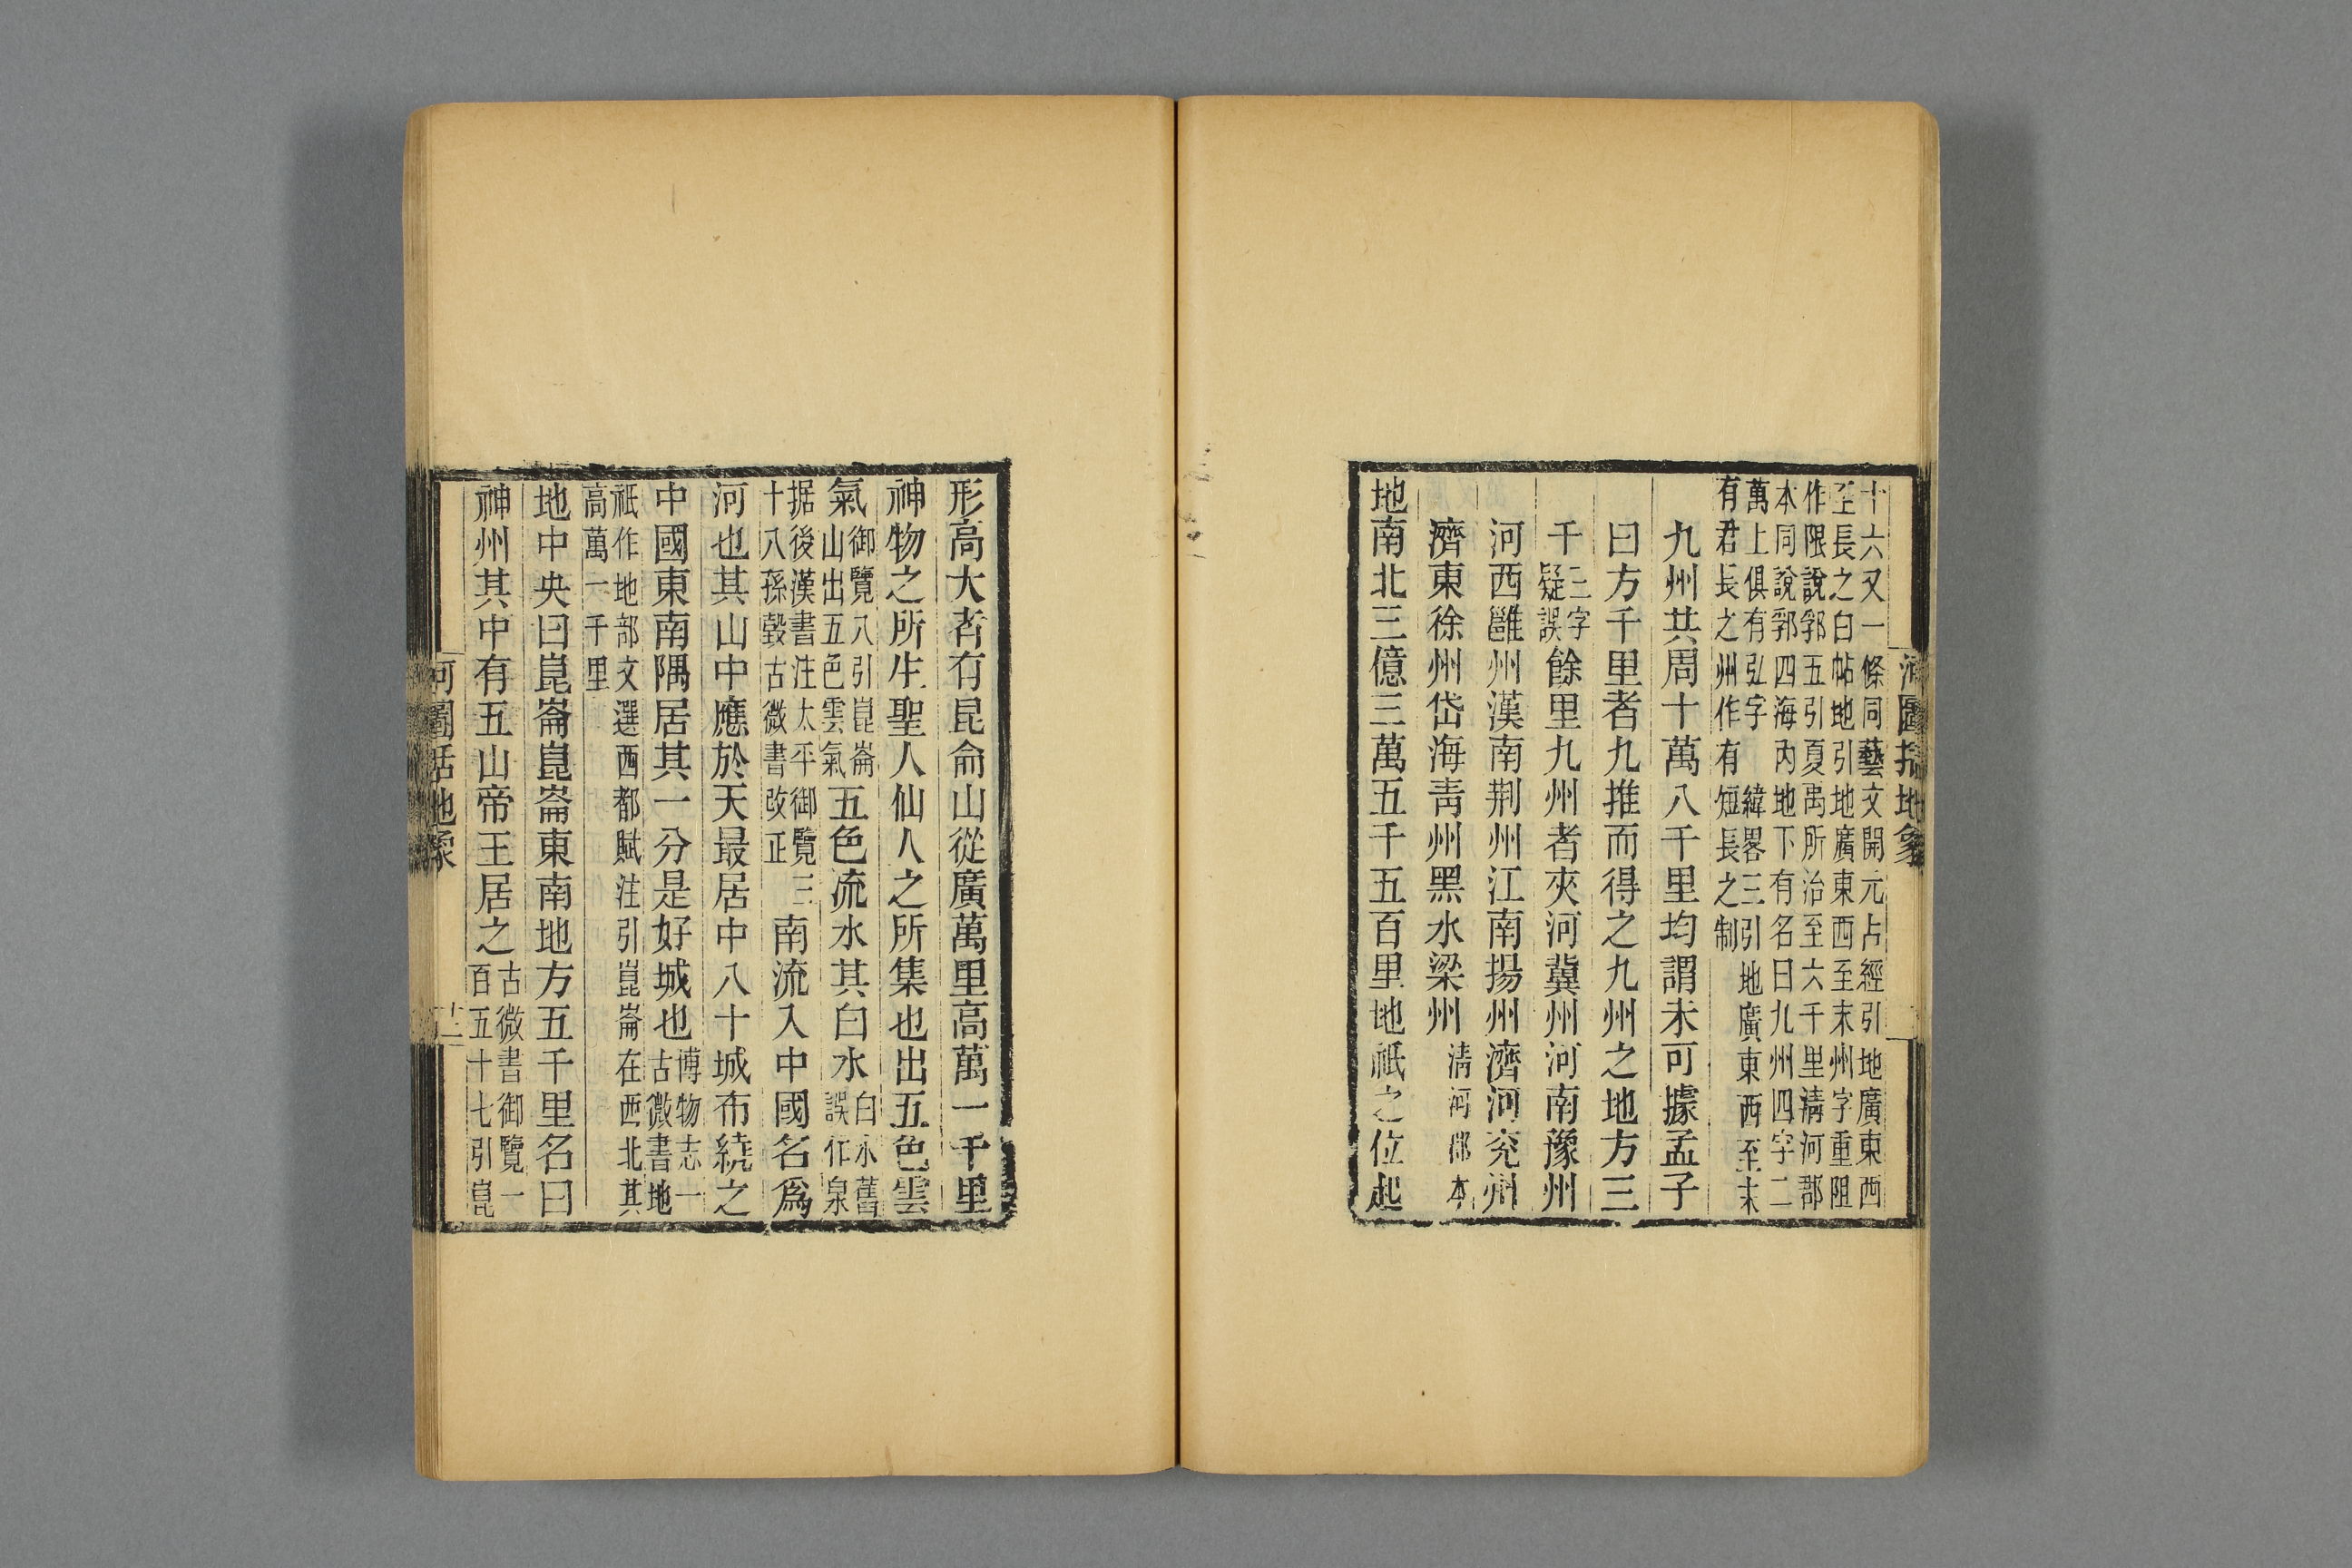 河圖括地象
十六又一條同藝文開元占經引地廣東西
至長之白帖地引地廣東西至末州字重阻
作限說郛五引夏禹所治至六千里淸河郡
本同說郛四海內地下有名曰九州四字二
萬上俱有弘字緯畧三引地廣東西至末
有君長之州作有短長之制
九州共周十萬八千里均謂未可據孟子
曰方千里者九推而得之九州之地方三
千三字疑誤餘里九州者夾河冀州河南豫州
河西雝州漢南荆州江南揚州濟河兖州
濟東徐州岱海靑州黑水梁州淸河郡本
地南北三億三萬五千五百里地祇之位起
形高大者有昆侖山從廣萬里高萬一千里
神物之所生聖人仙人之所集也出五色雲
氣御覽八引崑崙山出五色雲氣五色流水其白水白水舊誤作泉
据後漢書注太平御覽三十八孫瑴古微書改正南流入中國名爲
河也其山中應於天最居中八十城布繞之
中國東南隅居其一分是好城也博物志一古微書地
祇作地部文選西都賦注引崑崙在西北其
高萬一千里
地中央曰崑崙崑崙東南地方五千里名曰
神州其中有五山帝王居之古微書御覽一百五十七引崑
河圖括地象
十二